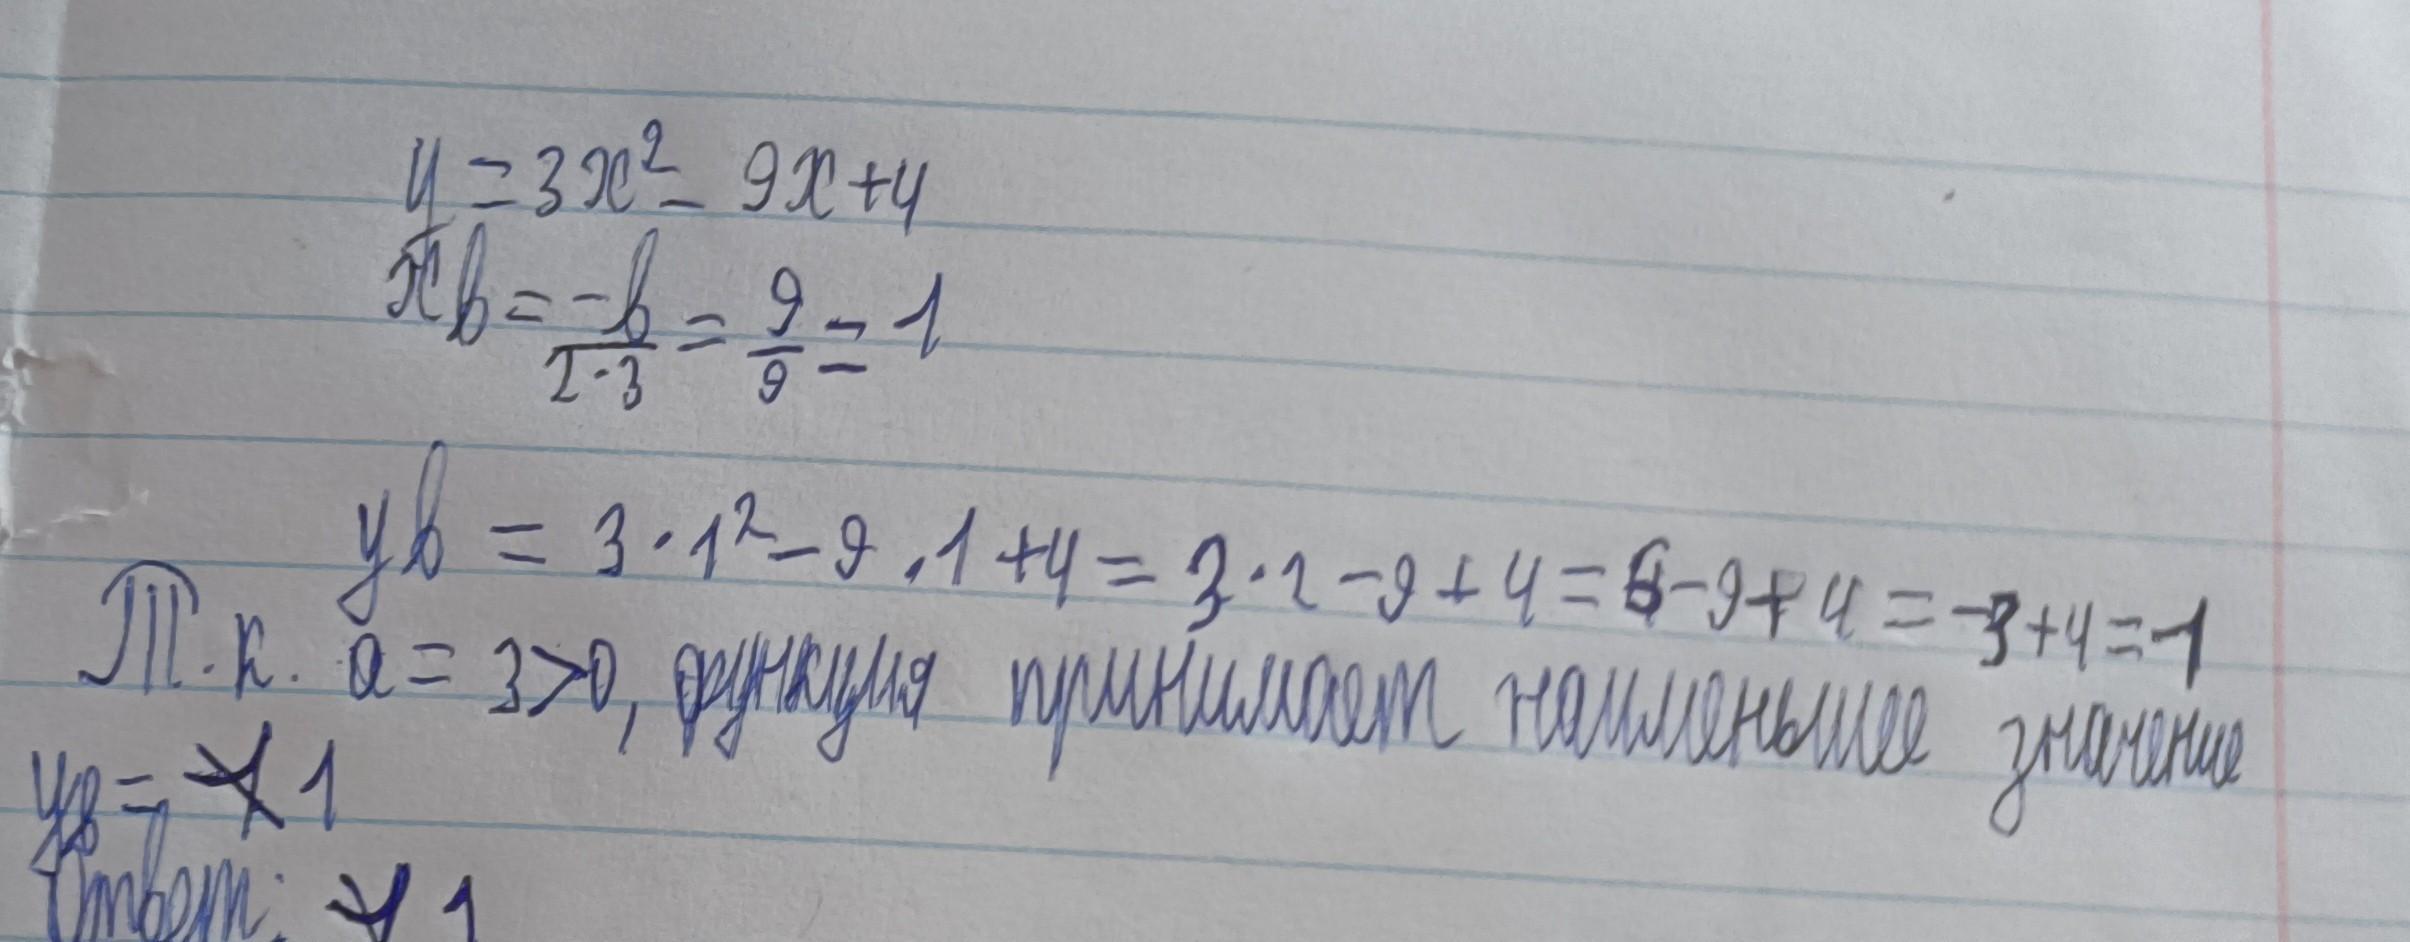 y = 3x² - 9x + 4
xв = -b/2·3 = 9/9 = 1
yв = 3·1² - 9·1 + 4 = 3·2 - 9 + 4 = 6 - 9 + 4 = -3 + 4 = -1
Т.к. a = 3 > 0, функция принимает наименьшее значение
yв = 1
Ответ: 1